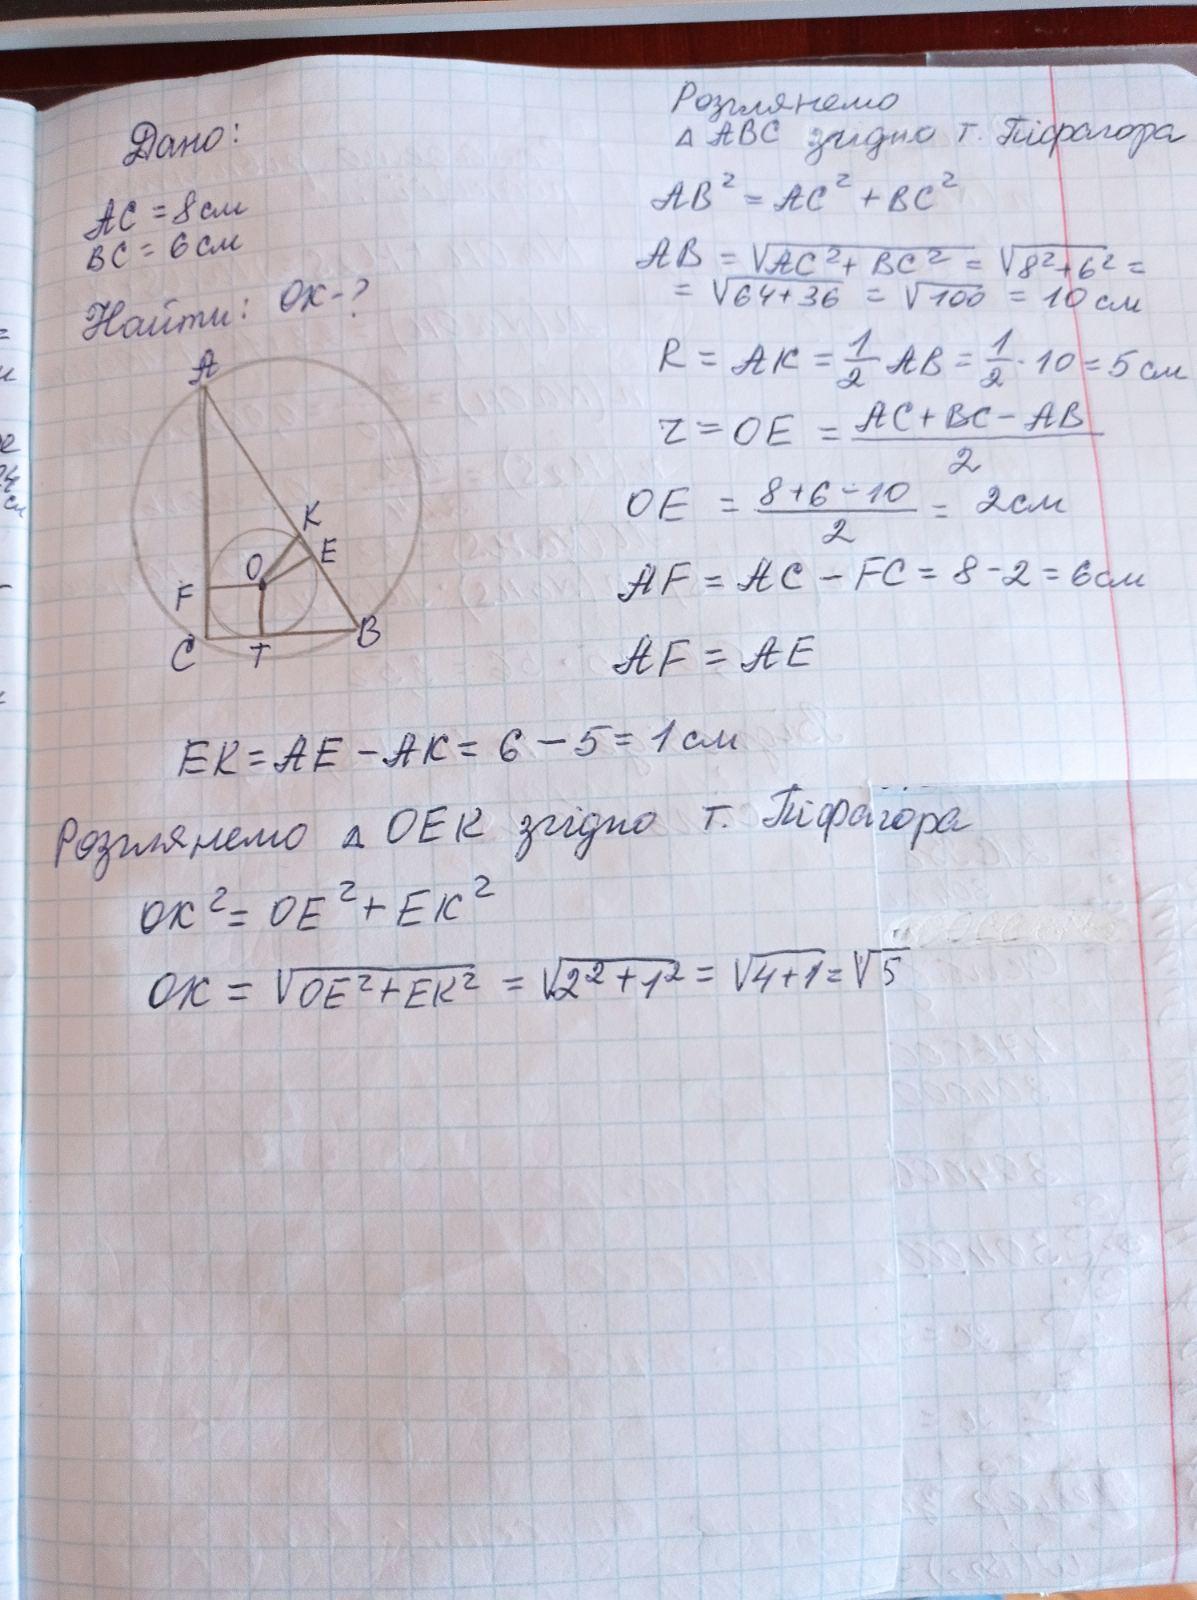 Дано:
AC = 8 см
BC = 6 см
Найти: OK - ?
A
K
E
O
F
C
T
B
Розглянемо
Δ ABC згідно т. Піфагора
AB² = AC² + BC²
AB = √AC² + BC² = √8² + 6² =
= √64 + 36 = √100 = 10 см
R = AK = 1/2 AB = 1/2 · 10 = 5 см
r = OE = AC + BC - AB / 2
OE = 8 + 6 - 10 / 2 = 2 см
AF = AC - FC = 8 - 2 = 6 см
AF = AE
EK = AE - AK = 6 - 5 = 1 см
Розглянемо Δ OEK згідно т. Піфагора
OK² = OE² + EK²
OK = √OE² + EK² = √2² + 1² = √4 + 1 = √5